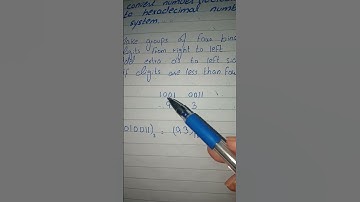 convert number
to hexadecimal num
system.
Take groups of four bina
digits from right to left
extra 0s to left s
if digits are less than fou
1001 0011
9 3
010011)₂ = (93)